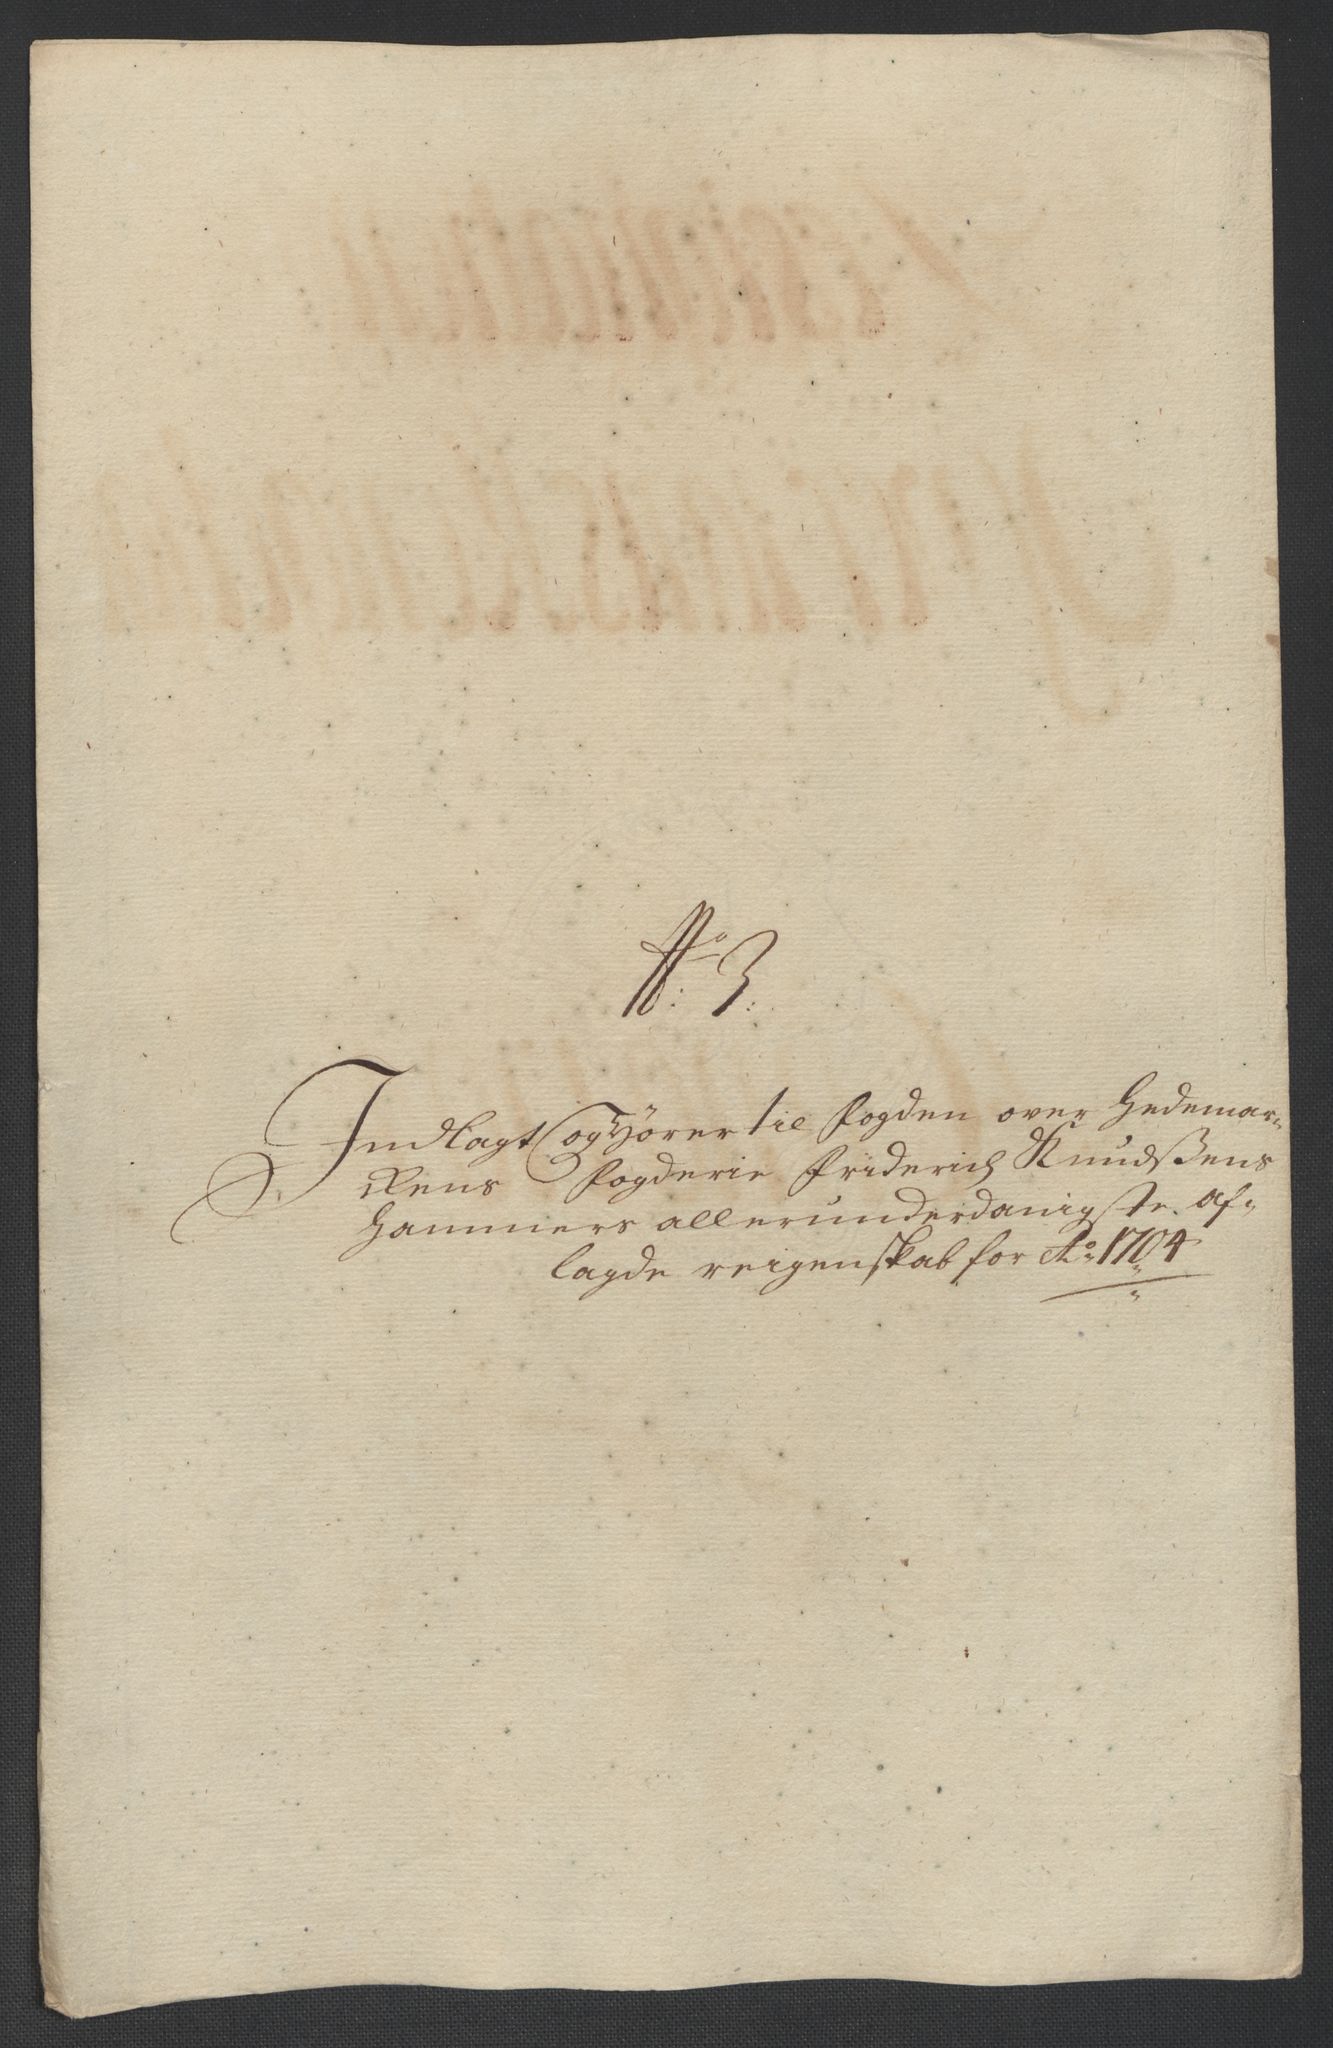 No: 3:
Indlagt og Hörer til fogden over Hedemar-
kens fogderie Friderich Knudßens
Hammers allerunderdanigste af-
lagde reigenskab for Ao: 1704